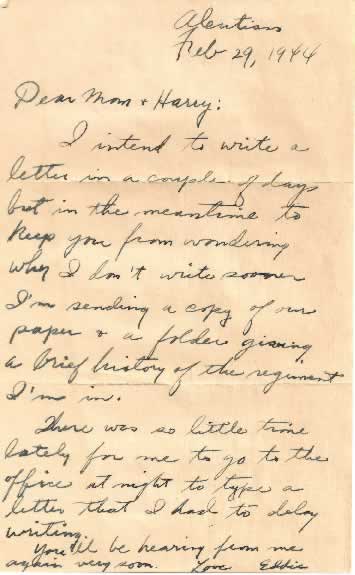 Aleutians
Feb 29, 1944
Dear Mom & Harry:
I intend to write a
letter in a couple of days
but in the meantime to
keep you from wondering
why I don't write sooner
I'm sending a copy of our
paper & a folder giving
a brief history of the regiment
I'm in.
There was so little time
lately for me to go to the
office at night to type a
letter that I had to delay
writing.
You'll be hearing from me
again very soon. Love Eddie